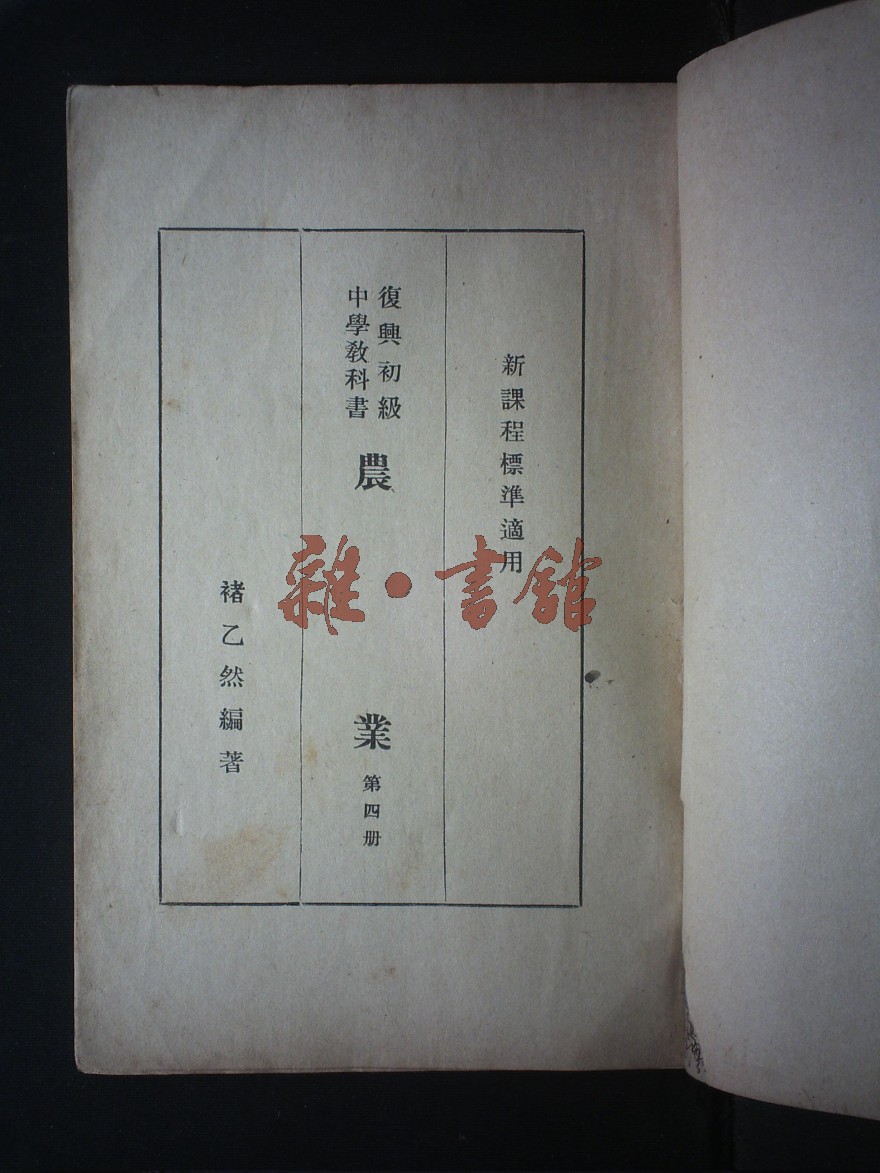 新課程標準適用
復興初級
中學教科書
農業
第四册
褚乙然編著
雜·書館